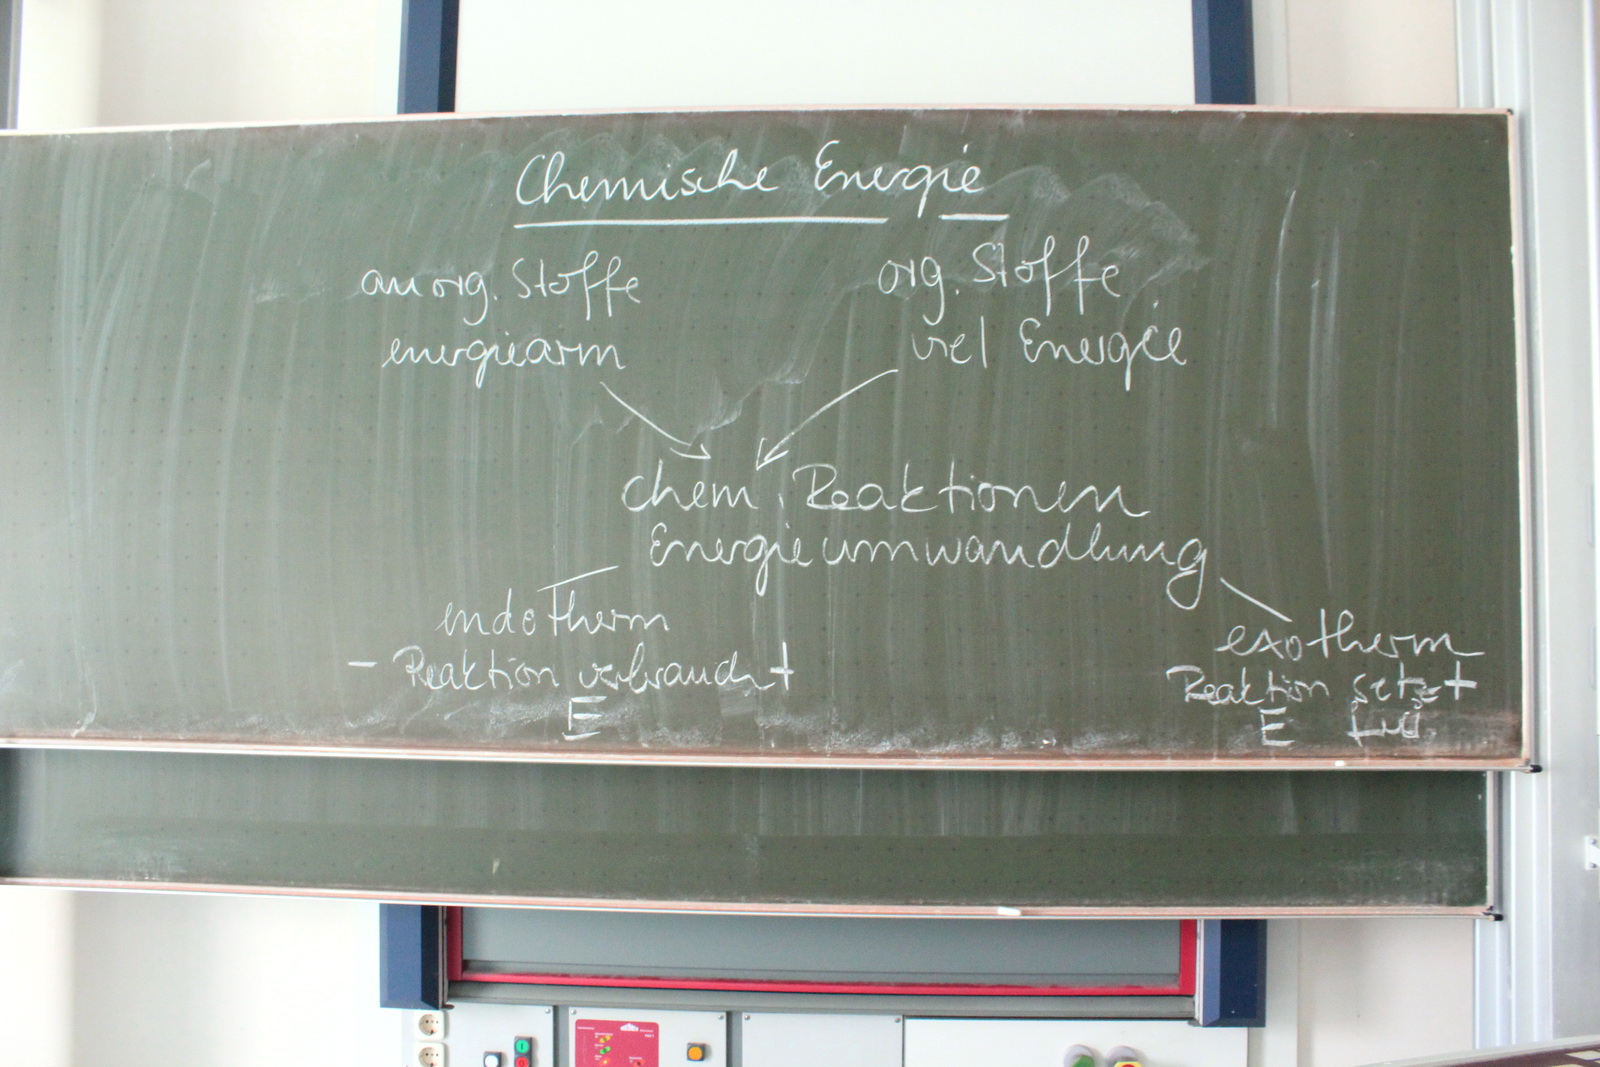 Chemische Energie
anorg. Stoffe
energiearm
org. Stoffe
viel Energie
chem. Reaktionen
Energieumwandlung
endotherm
- Reaktion verbraucht
E
exotherm
Reaktion setzt
E